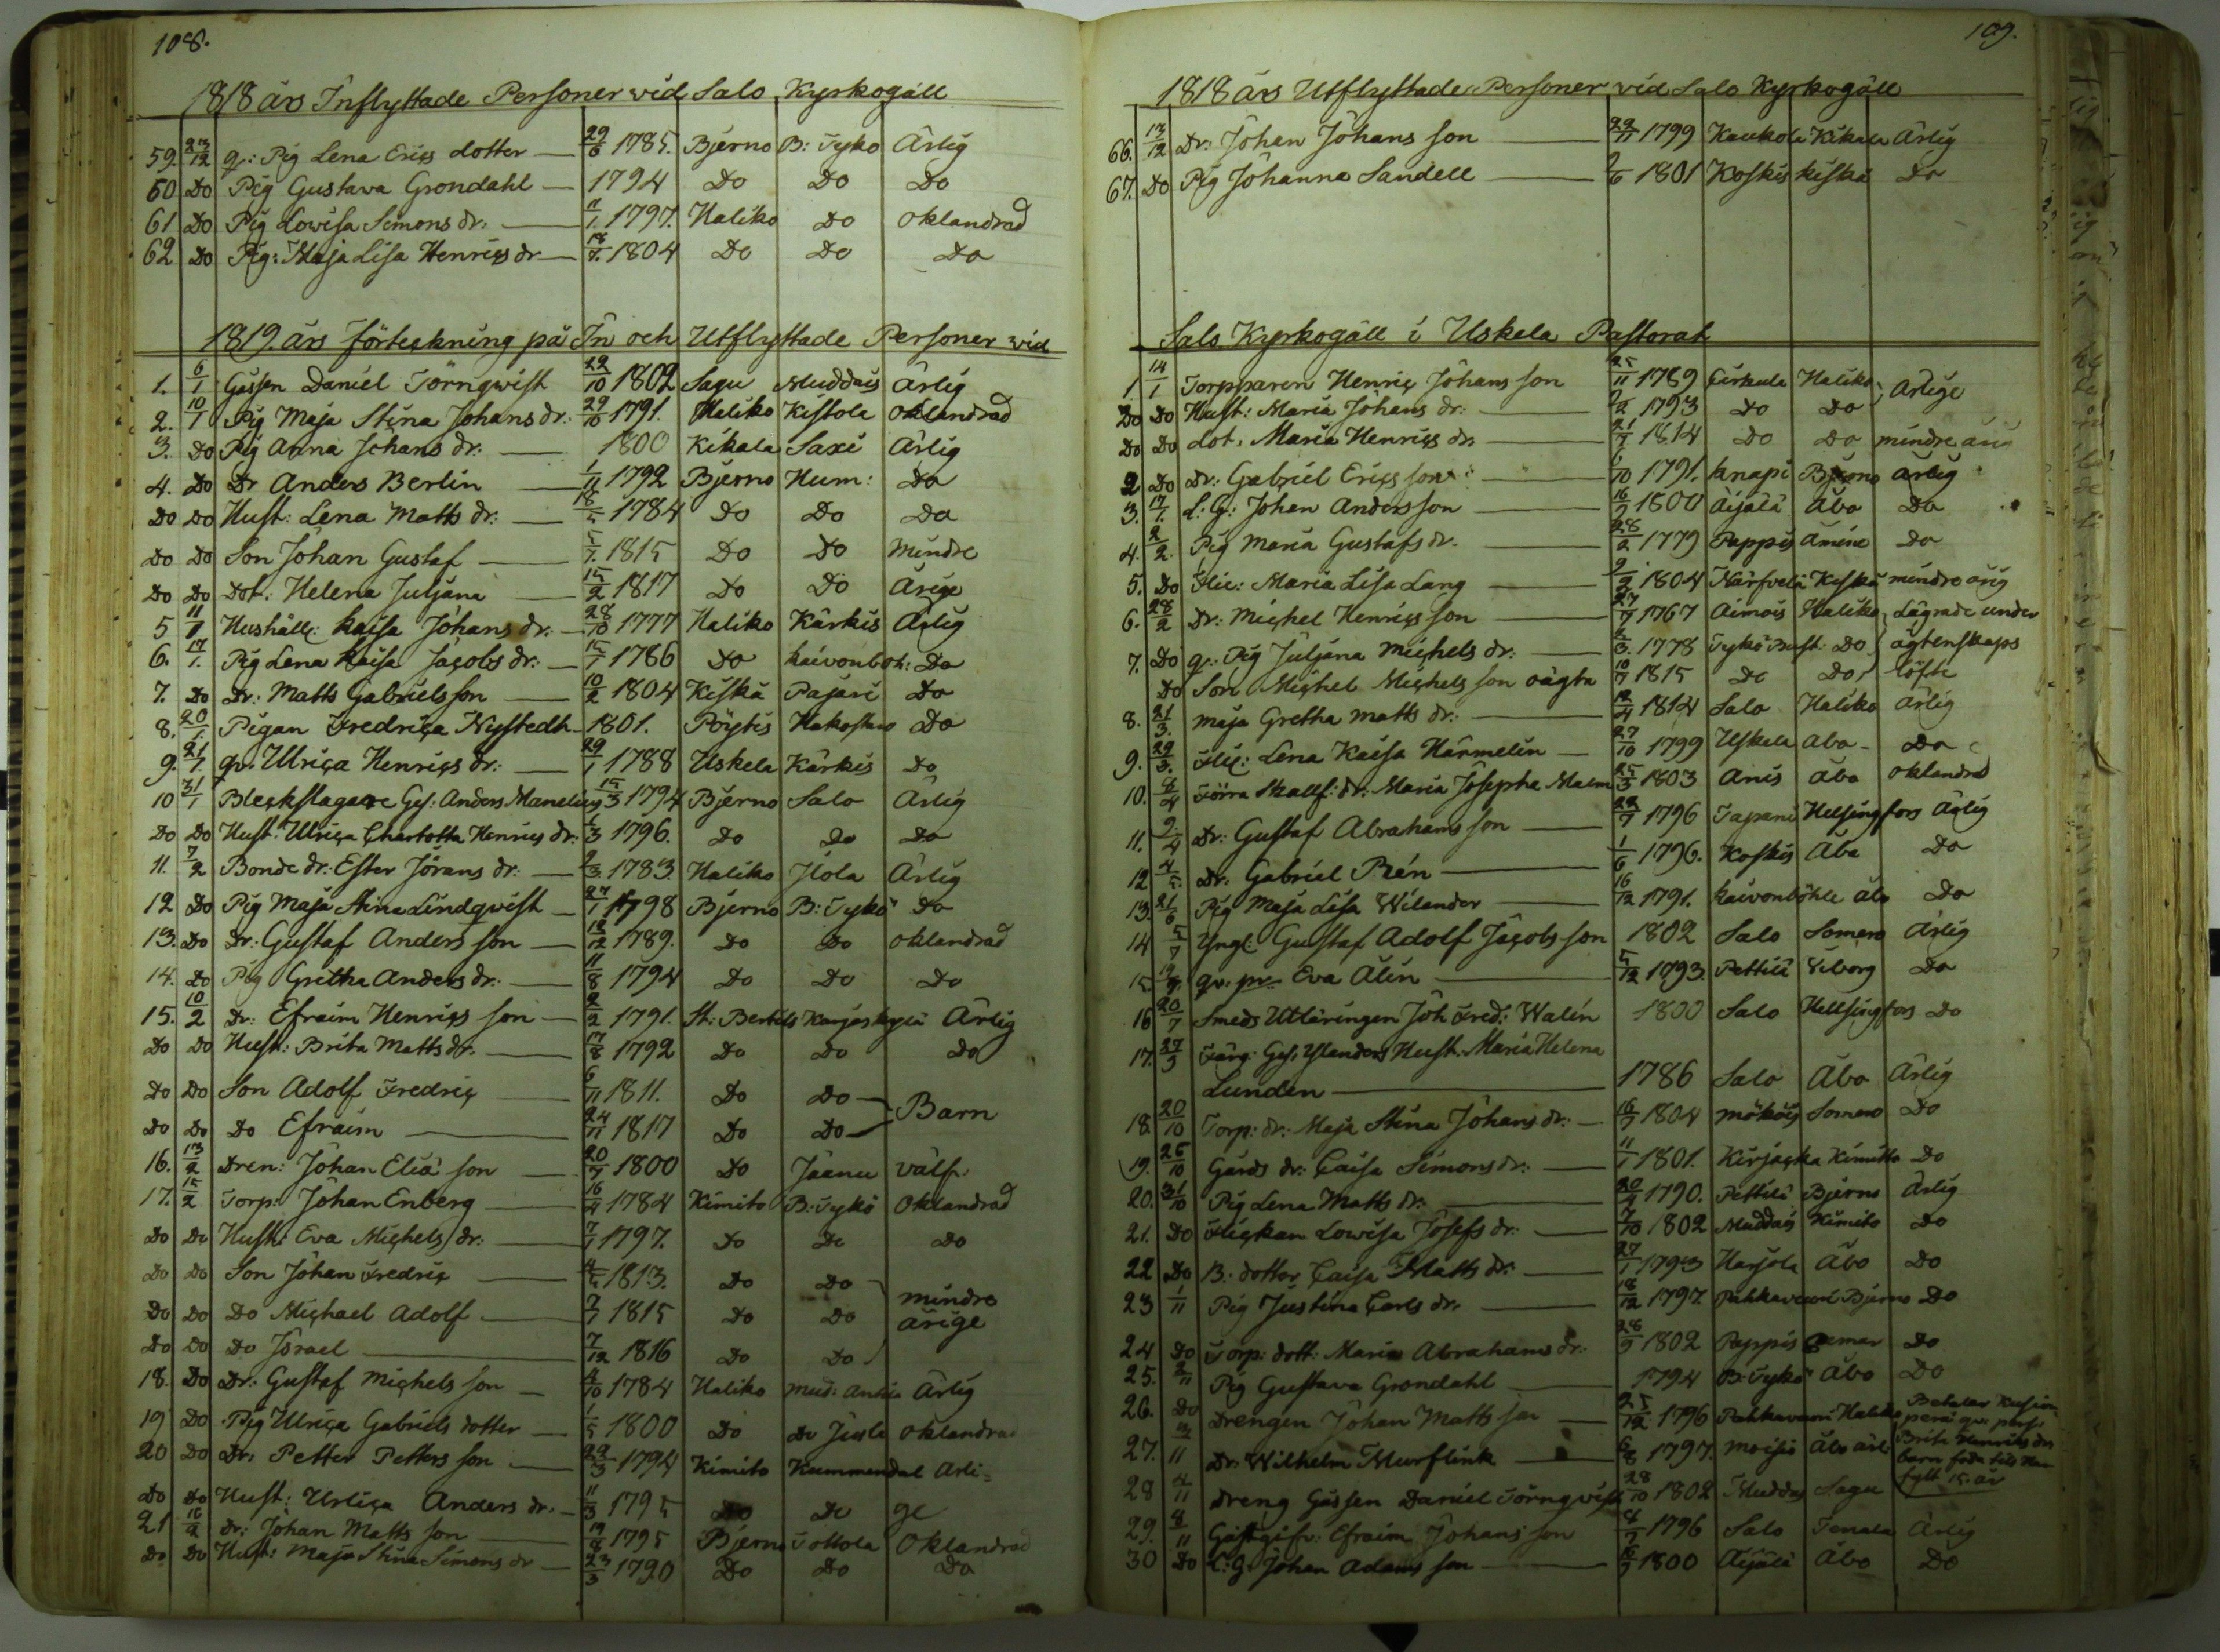 108.
1818 års Inflyttade Personer vid Salo Kyrkogäll
59. 23/12 q: Pig Lena Erics dotter — 29/6 1785. Bjerno B: Tyko Ärlig
60 Do Pig Gustava Grondahl — 1794 Do Do Do
61 Do Pig Lowisa Simons dr: — 11/1. 1797. Haliko Do oklandrad
62 Do Pig: Maja Lisa Henrics dr — 18/7. 1804 Do Do Do
1819. års förteckning på In och Utflyttade Personer vid
1. 6/1 Gossen Daniel Törnqwist 29/10 1802 Sagu Muddais Ärlig
2. 10/1 Pig Maja Stina Johans dr: 29/10 1791. Haliko Kistola oklandrad
3. Do Pig Anna Johans dr: — 1800 Kikala Saxi Ärlig
4. Do Dr Anders Berlin — 1/11 1792 Bjerno Num: Do
Do Do Hust: Lena Matts dr: — 18/5 1784 Do Do Do
Do Do Son Johan Gustaf — 5/7. 1815 Do Do Mindre
Do Do Dot: Helena Juljana — 15/2 1817 Do Do Årige
5 11/1 Hushåll: Kaisa Johans dr: — 28/10 1777 Haliko Kärkis Ärlig
6. 17/1. Pig Lena Kaisa Jacobs dr: — 15/1 1786 Do Kaivonboh: Do
7. Do Dr: Matts Gabriels son — 10/2 1804 Kiska Pajari Do
8. 20/1. Pigan Fredrica Nystedt — 1801. Pöytis Do
9. 21/1 qv: Ulrica Henrics dr: — 29/1 1788 Uskela Kärkis Do
10 31/1 Bleckslagare Ges: Anders Manelius 15/3 1794 Bjerno Salo Ärlig
Do Do Hust: Ulrica Charlotta Henrics dr: 1/3 1796. Do Do Do
11. 7/2 Bonde dr: Ester Jörans dr: — 2/3 1783 Haliko Ilola Ärlig
12 Do Pig Maja Stina Lindqwist — 27/1 1798 Bjerno B: Tykö Do
13. Do Dr: Gustaf Anders son — 12/12 1789. Do Do oklandrad
14. Do Pig Gretha Anders dr: — 11/8 1794 Do Do Do
15. 10/2 Dr: Efraim Henrics son — 2/2 1791. St: Bertils Karjaskylä Ärlig
Do Do Hust: Brita Matts dr: — 17/8 1792 Do Do Do
Do Do Son Adolf Fredric — 6/11 1811. Do Do Barn
Do Do Do Efraim — 24/11 1817 Do Do
16. 13/2 Dren: Johan Eliä son — 20/7 1800 Do Jäanu välf:
17. 15/2 Torp: Johan Enberg — 16/4 1784 Kimito B: Tykö Oklandrad
Do Do Hust: Eva Michels dr: — 7/1 1797. Do Do Do
Do Do Son Johan Fredric — 4/5 1813. Do Do mindre
Do Do Do Michael Adolf — 7/7 1815 Do Do årige
Do Do Do Israel — 7/12 1816 Do Do
18. Do Dr: Gustaf Michels son — 4/10 1784 Haliko Mud: Ärlig
19 Do Pig Ulrica Gabriels dotter — 1/5 1800 Do Do Juvla oklandrad
20 Do Dr: Petter Petters son — 22/3 1794 Kimito Kummendal Ärli=
Do Do Hust: Urlica Anders dr: — 11/3 1795 Do Do ge
21 16/2 dr: Johan Matts son — 19/8 1795 Bjerno Tottola Oklandrad
Do Do Hust: Maja Stina Simons dr — 23/3 1790 Do Do Do
109.
1818 års Utflyttade Personer vid Salo Kyrkogäll
66. 13/12 Dr: Johan Johans son — 22/11 1799 Kaukola Kikala Ärlig
67. Do Pig Johanna Sandell — 2/6 1801 Koskis Kiska Do
Salo Kyrkogäll i Uskela Pastorat
1. 14/1 Torpparen Henric Johans son 25/11 1789 Cirkula Haliko Ärlige
Do Do Hust: Maria Johans dr: — 2/2 1793 Do Do
Do Do Dot: Maria Henrics dr — 21/7 1814 Do Do mindre årig
2 Do Dr: Gabriel Erics son — 6/10 1791. Knapi Bjerno ärlig
3. 17/1. L: G: Johan Anders son — 16/9 1800 Äijälä Åbo Do
4. 2/2. Pig Maria Gustafs dr. — 28/2 1779 Pappis Åmine Do
5. Do Flic: Maria Lisa Lang — 9/3 1804 Närfvelä Kiska mindre årig
6. 28/2 Dr: Michel Henrics son — 27/7 1767 Aimois Haliko Lägrade under
7. Do q: Pig Juljana Michels dr: — 2/3. 1778 Tykö Bust: Do ägtenskaps
Do Son Michel Michels son oägta 10/7 1815 Do Do löfte
8. 21/3. Maja Gretha Matts dr: — 12/4 1814 Salo Haliko ärlig
9. 22/3. Flic: Lena Kaisa Härmelin — 27/10 1799 Uskela Åbo Do
10. 8/4 Förra Skallf: dr: Maria Josepha Malm 25/3 1803 Anis Åbo oklandrad
11. 9/4 Dr: Gustaf Abrahams son — 22/7 1796 Tapani Helsingfors Ärlig
12 4/5. Dr: Gabriel Rén — 1/6 1796. Koskis Åbo Do
13. 21/6 Pig Maja Lisa Wilander — 16/12 1791. Kaivonböhle Åbo Do
14 5/7 Yngl: Gustaf Adolf Jacobs son 1802 Salo Somero Ärlig
15. 19/7. qv: pr: Eva Älin — 5/12 1793. Pettilä Viborg Do
16 20/7 Smeds Utläringen Joh Fred: Walin 1800 Salo Hellsingfors Do
17. 27/9 Färg: Ges: Ylanders Hust: Maria Helena
Lunden — 1786 Salo Åbo Ärlig
18. 20/10 Torp: dr: Maja Stina Johans dr: — 16/7 1804 Mökois Somero Do
19. 26/10 Gårds dr: Caisa Simons dr: — 11/1 1801. Kirjacka Kimitto Do
20. 31/10 Pig Lena Matts dr: — 20/4 1790. Pettilä Bjerno Ärlig
21. Do Flickan Lowisa Josefs dr: — 7/10 1802 Muddais Kimito Do
22 Do B: dotter Caisa Matts dr: — 27/1 1793 Harjola Åbo Do
23 1/11 Pig Justina Carls dr: — 18/12 1797. Pahkavuori Bjerno Do
24 Do Torp: dott: Maria Abrahams dr: 28/9 1802 Pappis Do
25. 2/11 Pig Gustava Grondahl — 1794 B: Tykö Åbo Do
26. Do Drengen Johan Matts son — 25/12 1796 Pahkavuori Haliko Betalar
27. 11 Dr: Wilhelm Murflink — 6/8 1797. Moisio Åbo ärl: Brita Henrics dr
28 4/11 Dreng Gossen Daniel Törnqvist 28/10 1802 Muddas Sagu fylt 15. år
29. 8/11 Gästgifv: Efraim Johans son 8/7 1796 Salo Tenala Ärlig
30 Do L: g: Johan Adams son — 16/9 1800 Äijälä Åbo Do